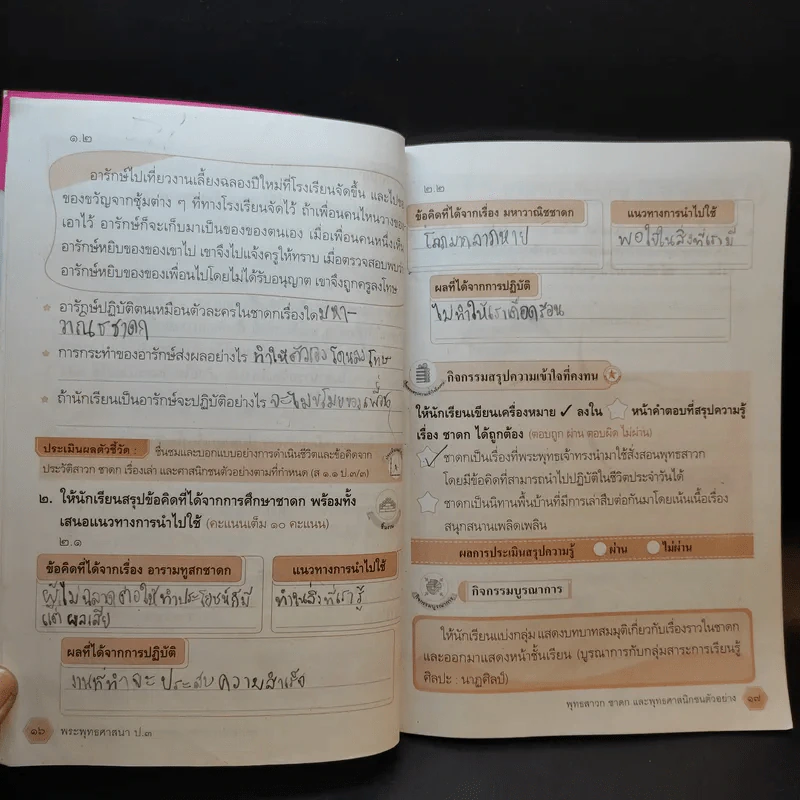 ๑.๒
อารักษ์ไปเที่ยวงานเลี้ยงฉลองปีใหม่ที่โรงเรียนจัดขึ้น และไป
ของขวัญจากซุ้มต่าง ๆ ที่ทางโรงเรียนจัดไว้ ถ้าเพื่อนคนไหนวางของ
เอาไว้ อารักษ์ก็จะเก็บมาเป็นของของตนเอง เมื่อเพื่อนคนหนึ่ง
อารักษ์หยิบของของเขาไป เขาจึงไปแจ้งครูให้ทราบ เมื่อตรวจสอบพบว่า
อารักษ์หยิบของของเพื่อนไปโดยไม่ได้รับอนุญาต เขาจึงถูกครูลงโทษ
อารักษ์ปฏิบัติตนเหมือนตัวละครในชาดกเรื่องใด มหา-
วาณิชชาดก
การกระทำของอารักษ์ส่งผลอย่างไร ทำให้ตัวเองโดนลงโทษ
ถ้านักเรียนเป็นอารักษ์จะปฏิบัติอย่างไร จะไม่ขโมยของเพื่อน
ประเมินผลตัวชี้วัด : ชื่นชมและบอกแบบอย่างการดำเนินชีวิตและข้อคิดจาก
ประวัติสาวก ชาดก เรื่องเล่า และศาสนิกชนตัวอย่างตามที่กำหนด (ส ๑.๑ ป.๓/๓)
๒. ให้นักเรียนสรุปข้อคิดที่ได้จากการศึกษาชาดก พร้อมทั้ง
เสนอแนวทางการนำไปใช้ (คะแนนเต็ม ๑๐ คะแนน)
๒.๑
ข้อคิดที่ได้จากเรื่อง อารามทูสกชาดก
ผู้ไม่ฉลาดต่อให้ทำประโยชน์ก็มี
แต่ผลเสีย
แนวทางการนำไปใช้
ทำในสิ่งที่เรารู้
ผลที่ได้จากการปฏิบัติ
งานที่ทำจะประสบความสำเร็จ
๑๖ พระพุทธศาสนา ป.๓
๒.๒
ข้อคิดที่ได้จากเรื่อง มหาวาณิชชาดก
โลภมากลาภหาย
แนวทางการนำไปใช้
พอใจในสิ่งที่เรามี
ผลที่ได้จากการปฏิบัติ
ไม่ทำให้เราเดือดร้อน
กิจกรรมสรุปความเข้าใจที่คงทน
ให้นักเรียนเขียนเครื่องหมาย ✓ ลงใน ☆ หน้าคำตอบที่สรุปความรู้
เรื่อง ชาดก ได้ถูกต้อง (ตอบถูก ผ่าน ตอบผิด ไม่ผ่าน)
✓ ชาดกเป็นเรื่องที่พระพุทธเจ้าทรงนำมาใช้สั่งสอนพุทธสาวก
โดยมีข้อคิดที่สามารถนำไปปฏิบัติในชีวิตประจำวันได้
ชาดกเป็นนิทานพื้นบ้านที่มีการเล่าสืบต่อกันมาโดยเน้นเนื้อเรื่อง
สนุกสนานเพลิดเพลิน
ผลการประเมินสรุปความรู้ ผ่าน ไม่ผ่าน
กิจกรรมบูรณาการ
ให้นักเรียนแบ่งกลุ่ม แสดงบทบาทสมมุติเกี่ยวกับเรื่องราวในชาดก
และออกมาแสดงหน้าชั้นเรียน (บูรณาการกับกลุ่มสาระการเรียนรู้
ศิลปะ : นาฏศิลป์)
พุทธสาวก ชาดก และพุทธศาสนิกชนตัวอย่าง ๑๗